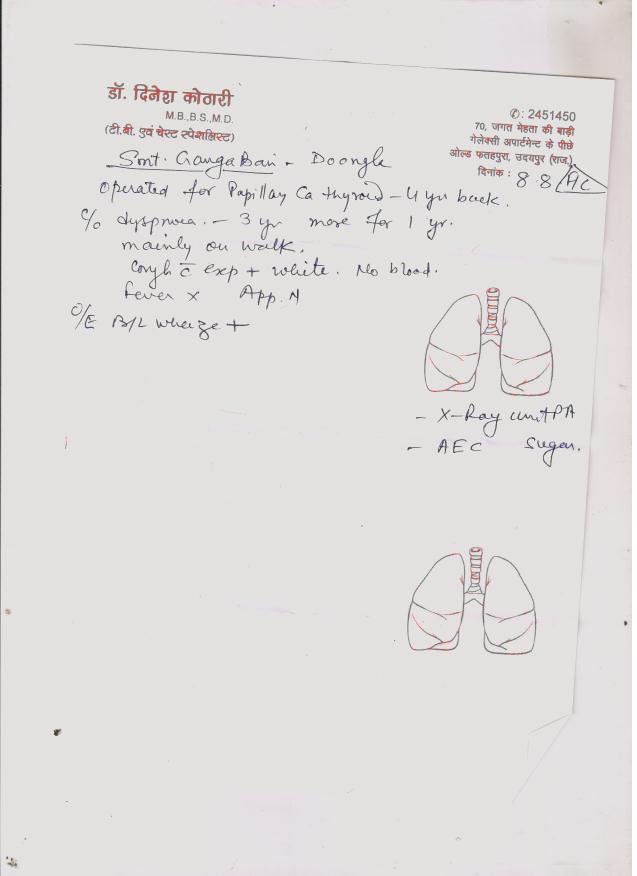 डॉ. दिनेश कोठारी
M.B.,B.S.,M.D.
(टी.बी. एवं चेस्ट स्पेशलिस्ट)
✆: 2451450
70, जगत मेहता की बाड़ी
गेलेक्सी अपार्टमेन्ट के पीछे
ओल्ड फतहपुरा, उदयपुर (राज.)
दिनांक : 8.8
Smt. Ganga Bai - Doongla
Operated for Papillary Ca thyroid - 4 yr back.
C/o dyspnoea. - 3 yr more for 1 yr.
mainly on walk.
Cough c̄ exp + white. No blood.
Fever x App. N
O/E B/L wheeze +
- X-Ray chest PA
- AEC Sugar.